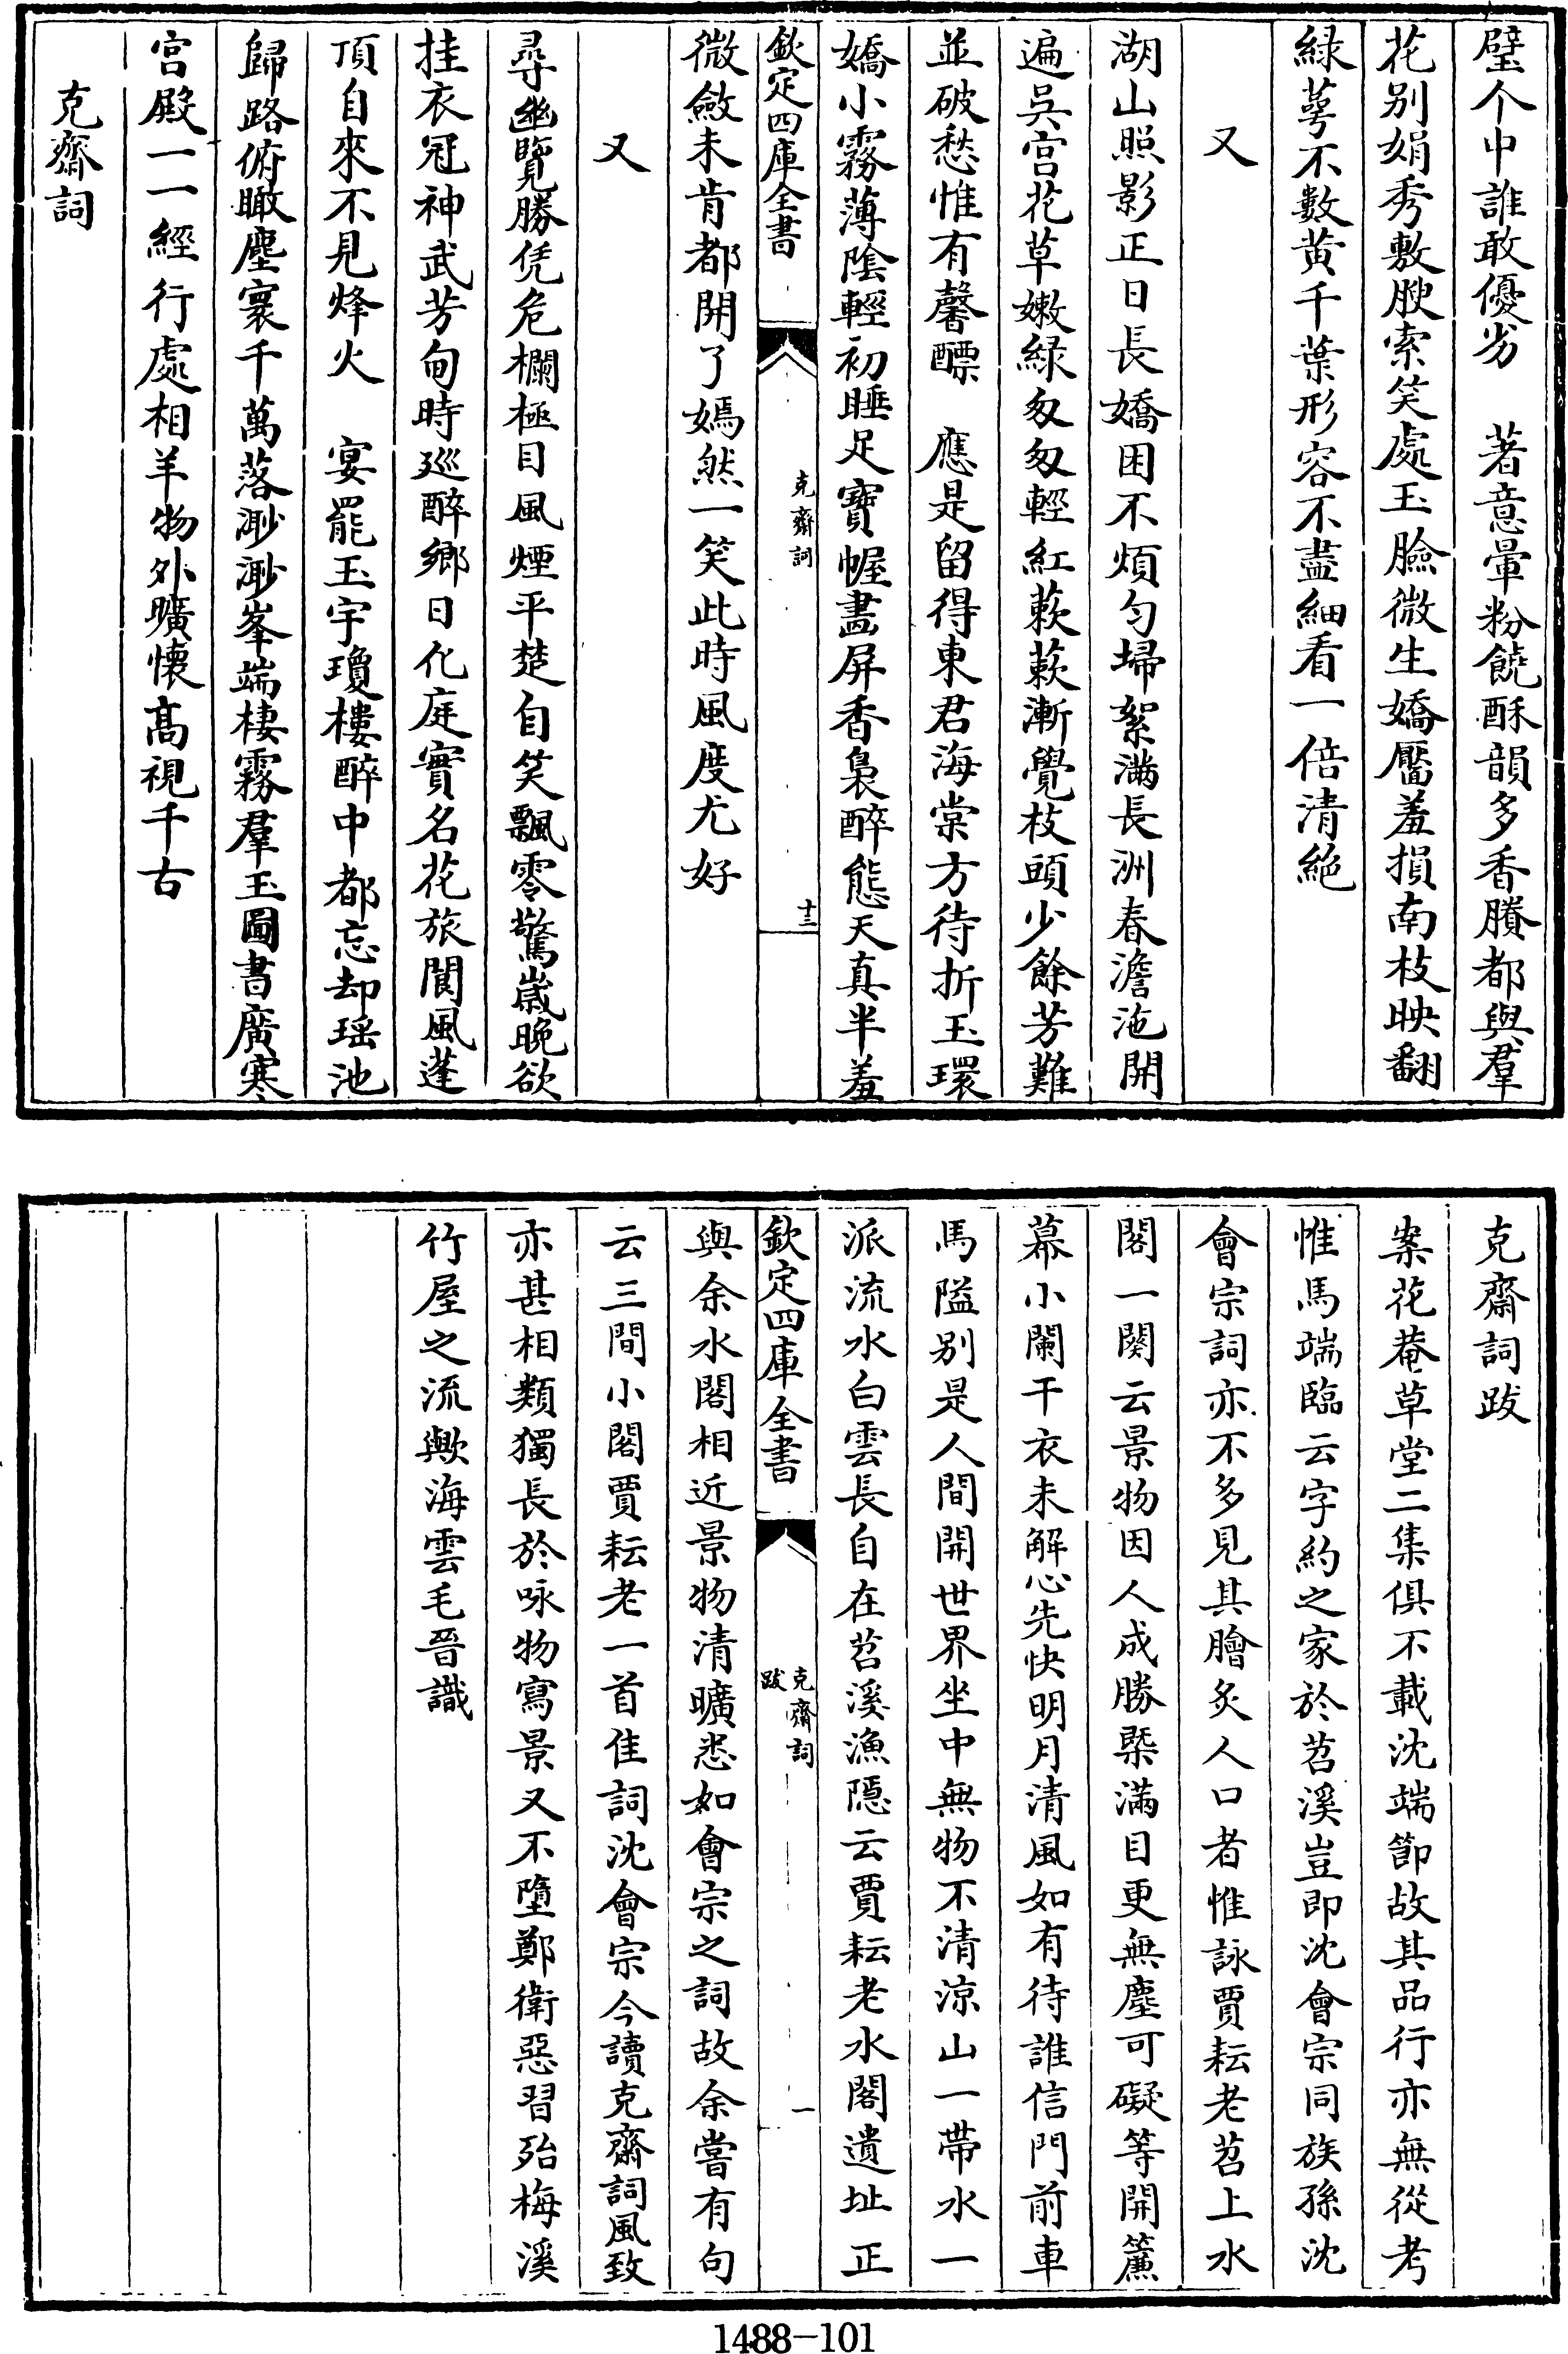 璧个中誰敢優劣　著意暈粉饒酥韻多香賸都與羣
花别娟秀敷腴索笑處玉臉微生嬌靨羞損南枝映翻
緑萼不數黄千葉形容不盡細看一倍清絶
又
湖山照影正日長嬌困不煩匀埽絮滿長洲春澹沲開
遍吳宫花草嫩緑匆匆輕紅蔌蔌漸覺枝頭少餘芳難
並破愁惟有馨醥　應是留得東君海棠方待折玉環
嬌小霧薄陰輕初睡足寶幄畫屏香裊醉態天真半羞
欽定四庫全書
克齋詞
十三
微斂未肯都開了嫣然一笑此時風度尤好
又
尋幽覽勝凭危欄極目風煙平楚自笑飄零驚歲晚欲
挂衣冠神武芳甸時廵醉鄉日化庭實名花旅閬風蓬
頂自來不見烽火　宴罷玉宇瓊樓醉中都忘却瑶池
歸路俯瞰塵寰千萬落渺渺峯端棲霧羣玉圖書廣寒
宫殿一一經行處相羊物外曠懷髙視千古
克齋詞
克齋詞跋
案花菴草堂二集俱不載沈端節故其品行亦無從考
惟馬端臨云字約之家於苕溪豈即沈會宗同族孫沈
會宗詞亦不多見其膾炙人口者惟詠賈耘老苕上水
閣一闋云景物因人成勝槩滿目更無塵可礙等閒簾
幕小闌干衣未解心先快明月清風如有待誰信門前車
馬隘别是人間閒世界坐中無物不清凉山一帶水一
派流水白雲長自在苕溪漁隠云賈耘老水閣遺址正
欽定四庫全書
克齋詞
跋
一
與余水閣相近景物清曠悉如會宗之詞故余嘗有句
云三間小閣賈耘老一首佳詞沈會宗今讀克齋詞風致
亦甚相類獨長於咏物寫景又不墮鄭衛惡習殆梅溪
竹屋之流歟海雲毛晉識
1488-101